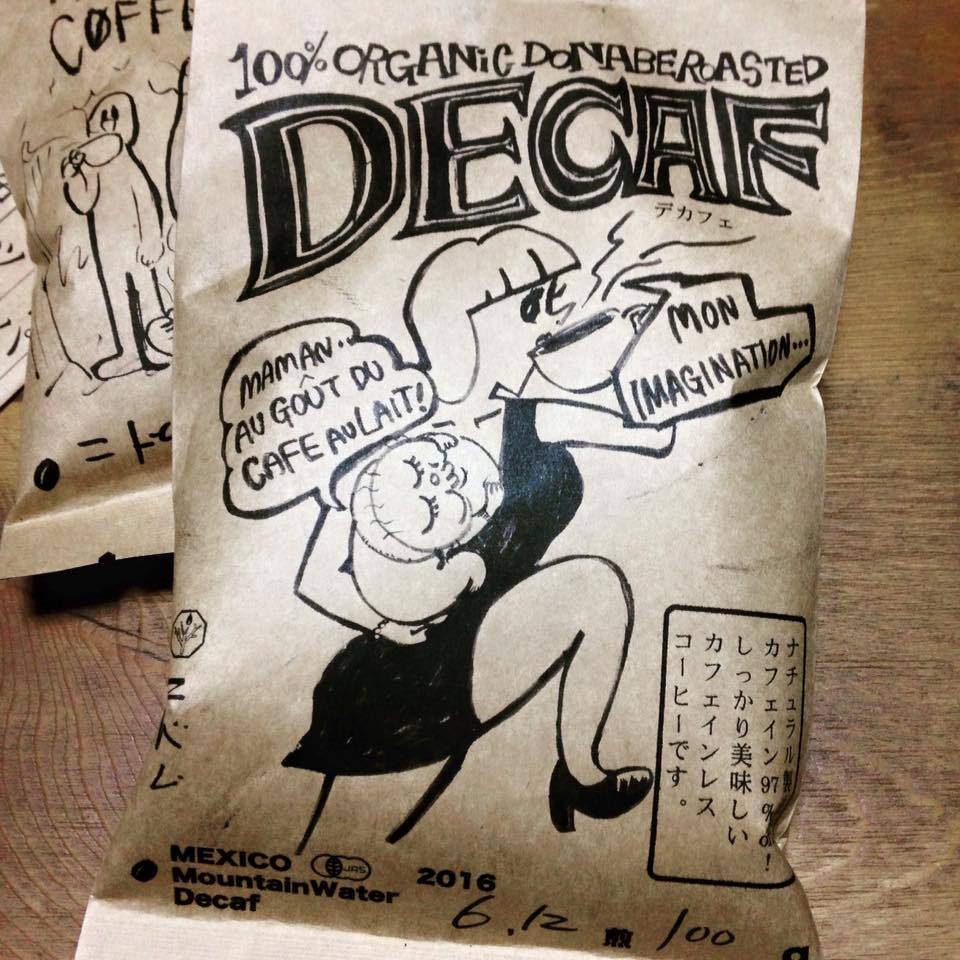 COFFE
100% ORGANIC DONABE ROASTED
DECAF
デカフェ
MAMAN..
AU GOÛT DU
CAFE AU LAIT!
MON
IMAGINATION...
ナチュラル製
カフェイン97%
しっかり美味しい
カフェインレス
コーヒーです。
MEXICO
JAS
MountainWater
Decaf
2016
6.12 煎 100